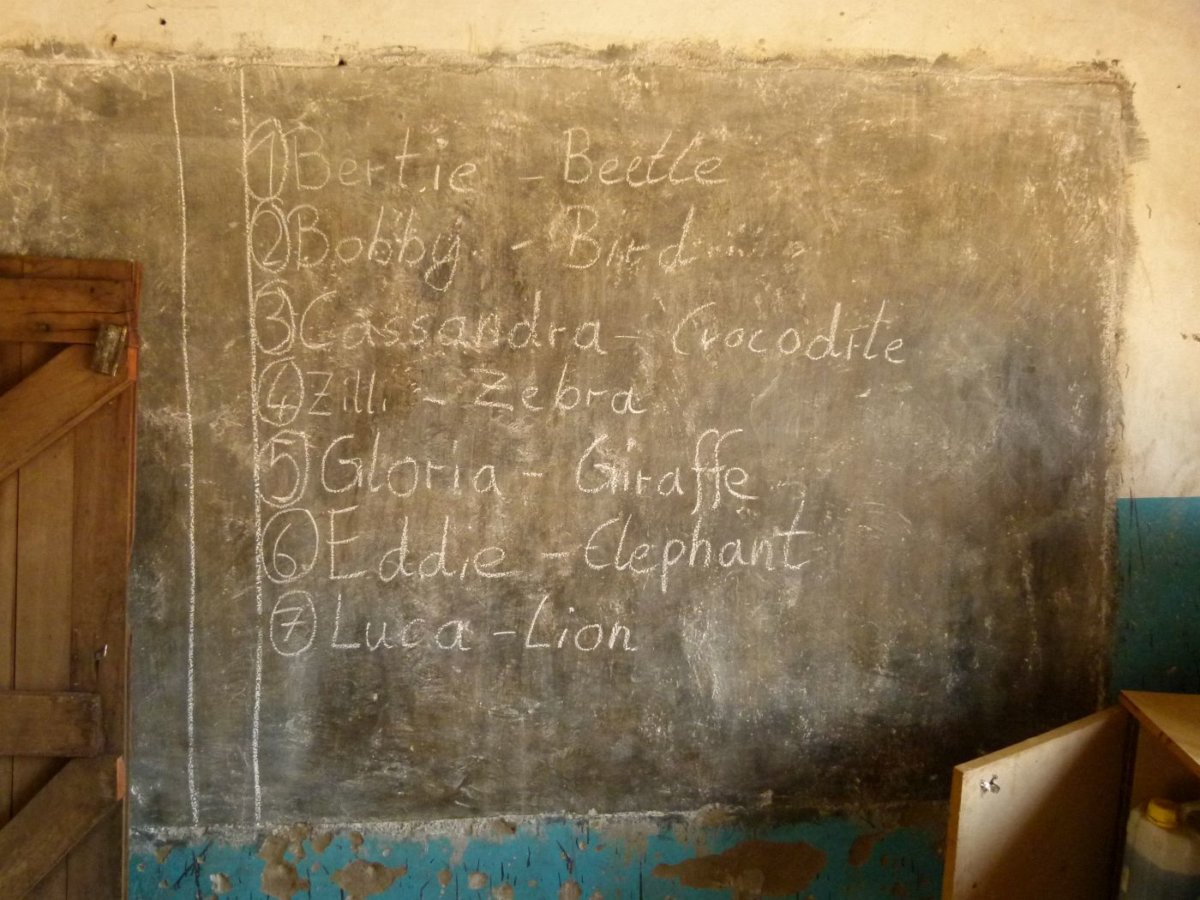 ① Bertie - Beetle
② Bobby - Bird
③ Cassandra - Crocodile
④ Zilli - Zebra
⑤ Gloria - Giraffe
⑥ Eddie - Elephant
⑦ Luca - Lion